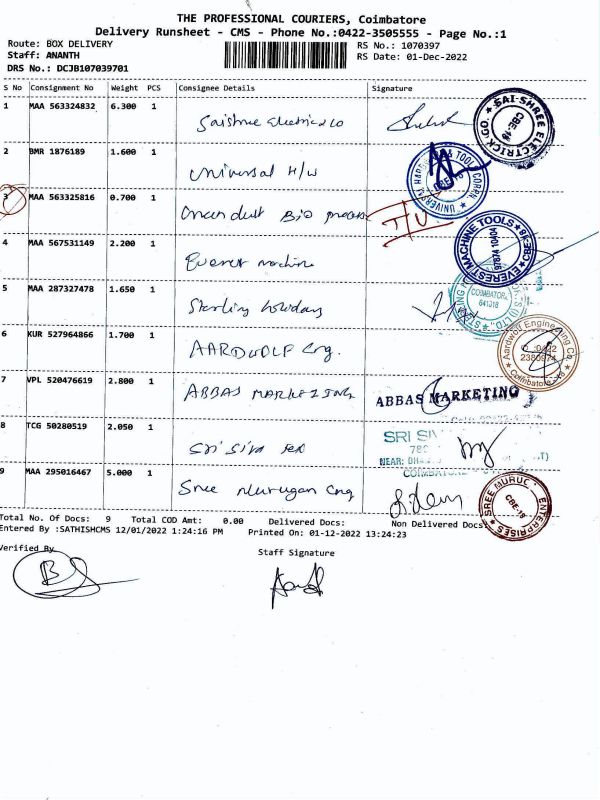 THE PROFESSIONAL COURIERS, Coimbatore
Delivery Runsheet - CMS - Phone No.:0422-3505555 - Page No.:1
Route: BOX DELIVERY RS No.: 1070397
Staff: ANANTH RS Date: 01-Dec-2022
DRS No.: DCJB107039701
S No Consignment No Weight PCS Consignee Details Signature
1 MAA 563324832 6.300 1 Saishree Electric Co SAI-SHREE ELECTRICK CO. CBE-18
2 BMR 1876189 1.600 1 Universal H/W UNIVERSAL HARDWARE & TOOL CORRN.
3 MAA 563325816 0.700 1 Bio process I/U
4 MAA 567531149 2.200 1 Everest machine EVEREST MACHINE TOOLS CBE-18 97874 10404
5 MAA 287327478 1.650 1 Sterling holidays COIMBATORE 641018
6 KUR 527964866 1.700 1 AARDWOLF Eng. Aardwolf Engineering Co. Coimbatore
7 VPL 520476619 2.800 1 ABBAS MARKETING ABBAS MARKETING
8 TCG 50280519 2.050 1 Sri Siva Tex SRI NEAR:
COIMBATORE
9 MAA 295016467 5.000 1 Sree Murugan Eng SREE ENTERPRISES CBE-18
Total No. Of Docs: 9 Total COD Amt: 0.00 Delivered Docs: Non Delivered Docs:
Entered By :SATHISHCMS 12/01/2022 1:24:16 PM Printed On: 01-12-2022 13:24:23
Verified By Staff Signature